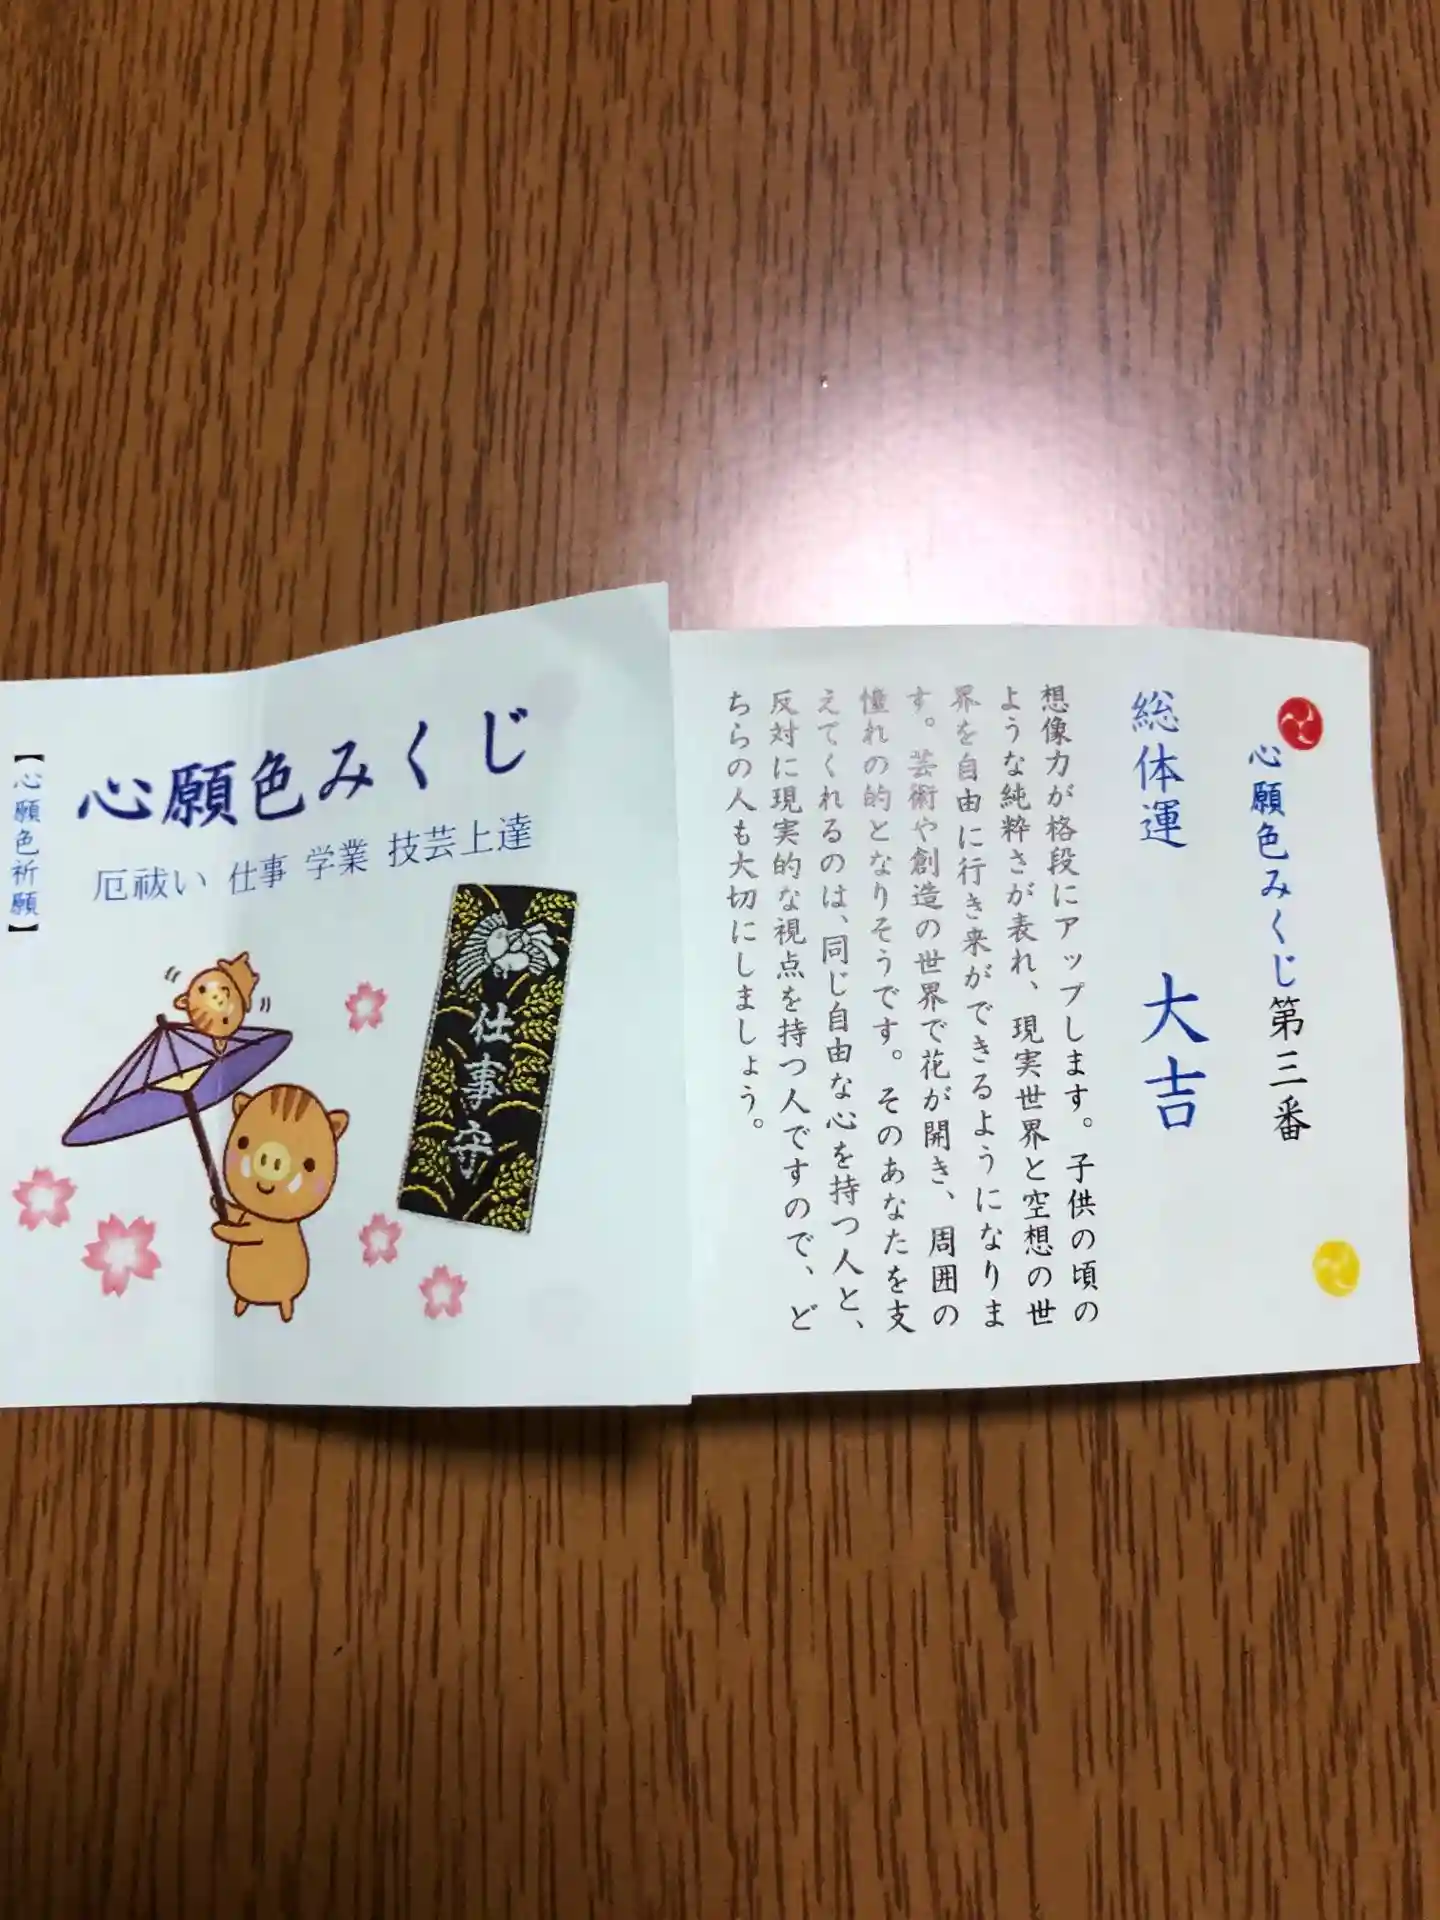 心願色みくじ第三番
総体運　大吉
想像力が格段にアップします。子供の頃の
ような純粋さが表れ、現実世界と空想の世
界を自由に行き来ができるようになりま
す。芸術や創造の世界で花が開き、周囲の
憧れの的となりそうです。そのあなたを支
えてくれるのは、同じ自由な心を持つ人と、
反対に現実的な視点を持つ人ですので、ど
ちらの人も大切にしましょう。
心願色みくじ
厄祓い 仕事 学業 技芸上達
仕事守
【心願色祈願】